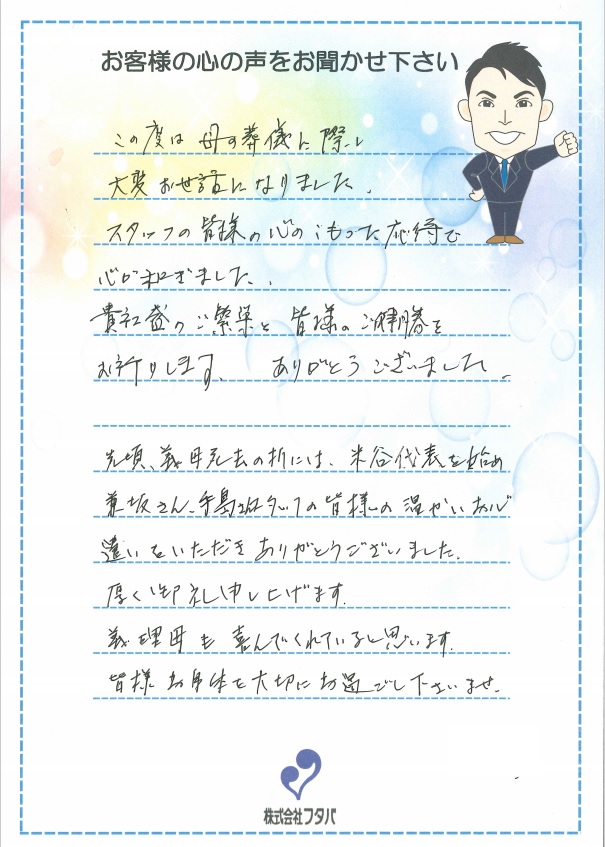 お客様の心の声をお聞かせ下さい
この度は 母の葬儀に際し
大変お世話になりました。
スタッフの皆様の心のこもった応待で
心が和ぎました。
貴社益々ご繁栄と 皆様のご健勝を
お祈りします。 ありがとうございました。
先頃、義母死去の折には、米谷代表を始め
坂さん、手島さん スタッフの皆様の温かいお心
遣いをいただき ありがとうございました。
厚く御礼申し上げます。
義理母も 喜んでくれていると思います。
皆様 お身体を大切にお過ごし下さいませ。
株式会社フタバ